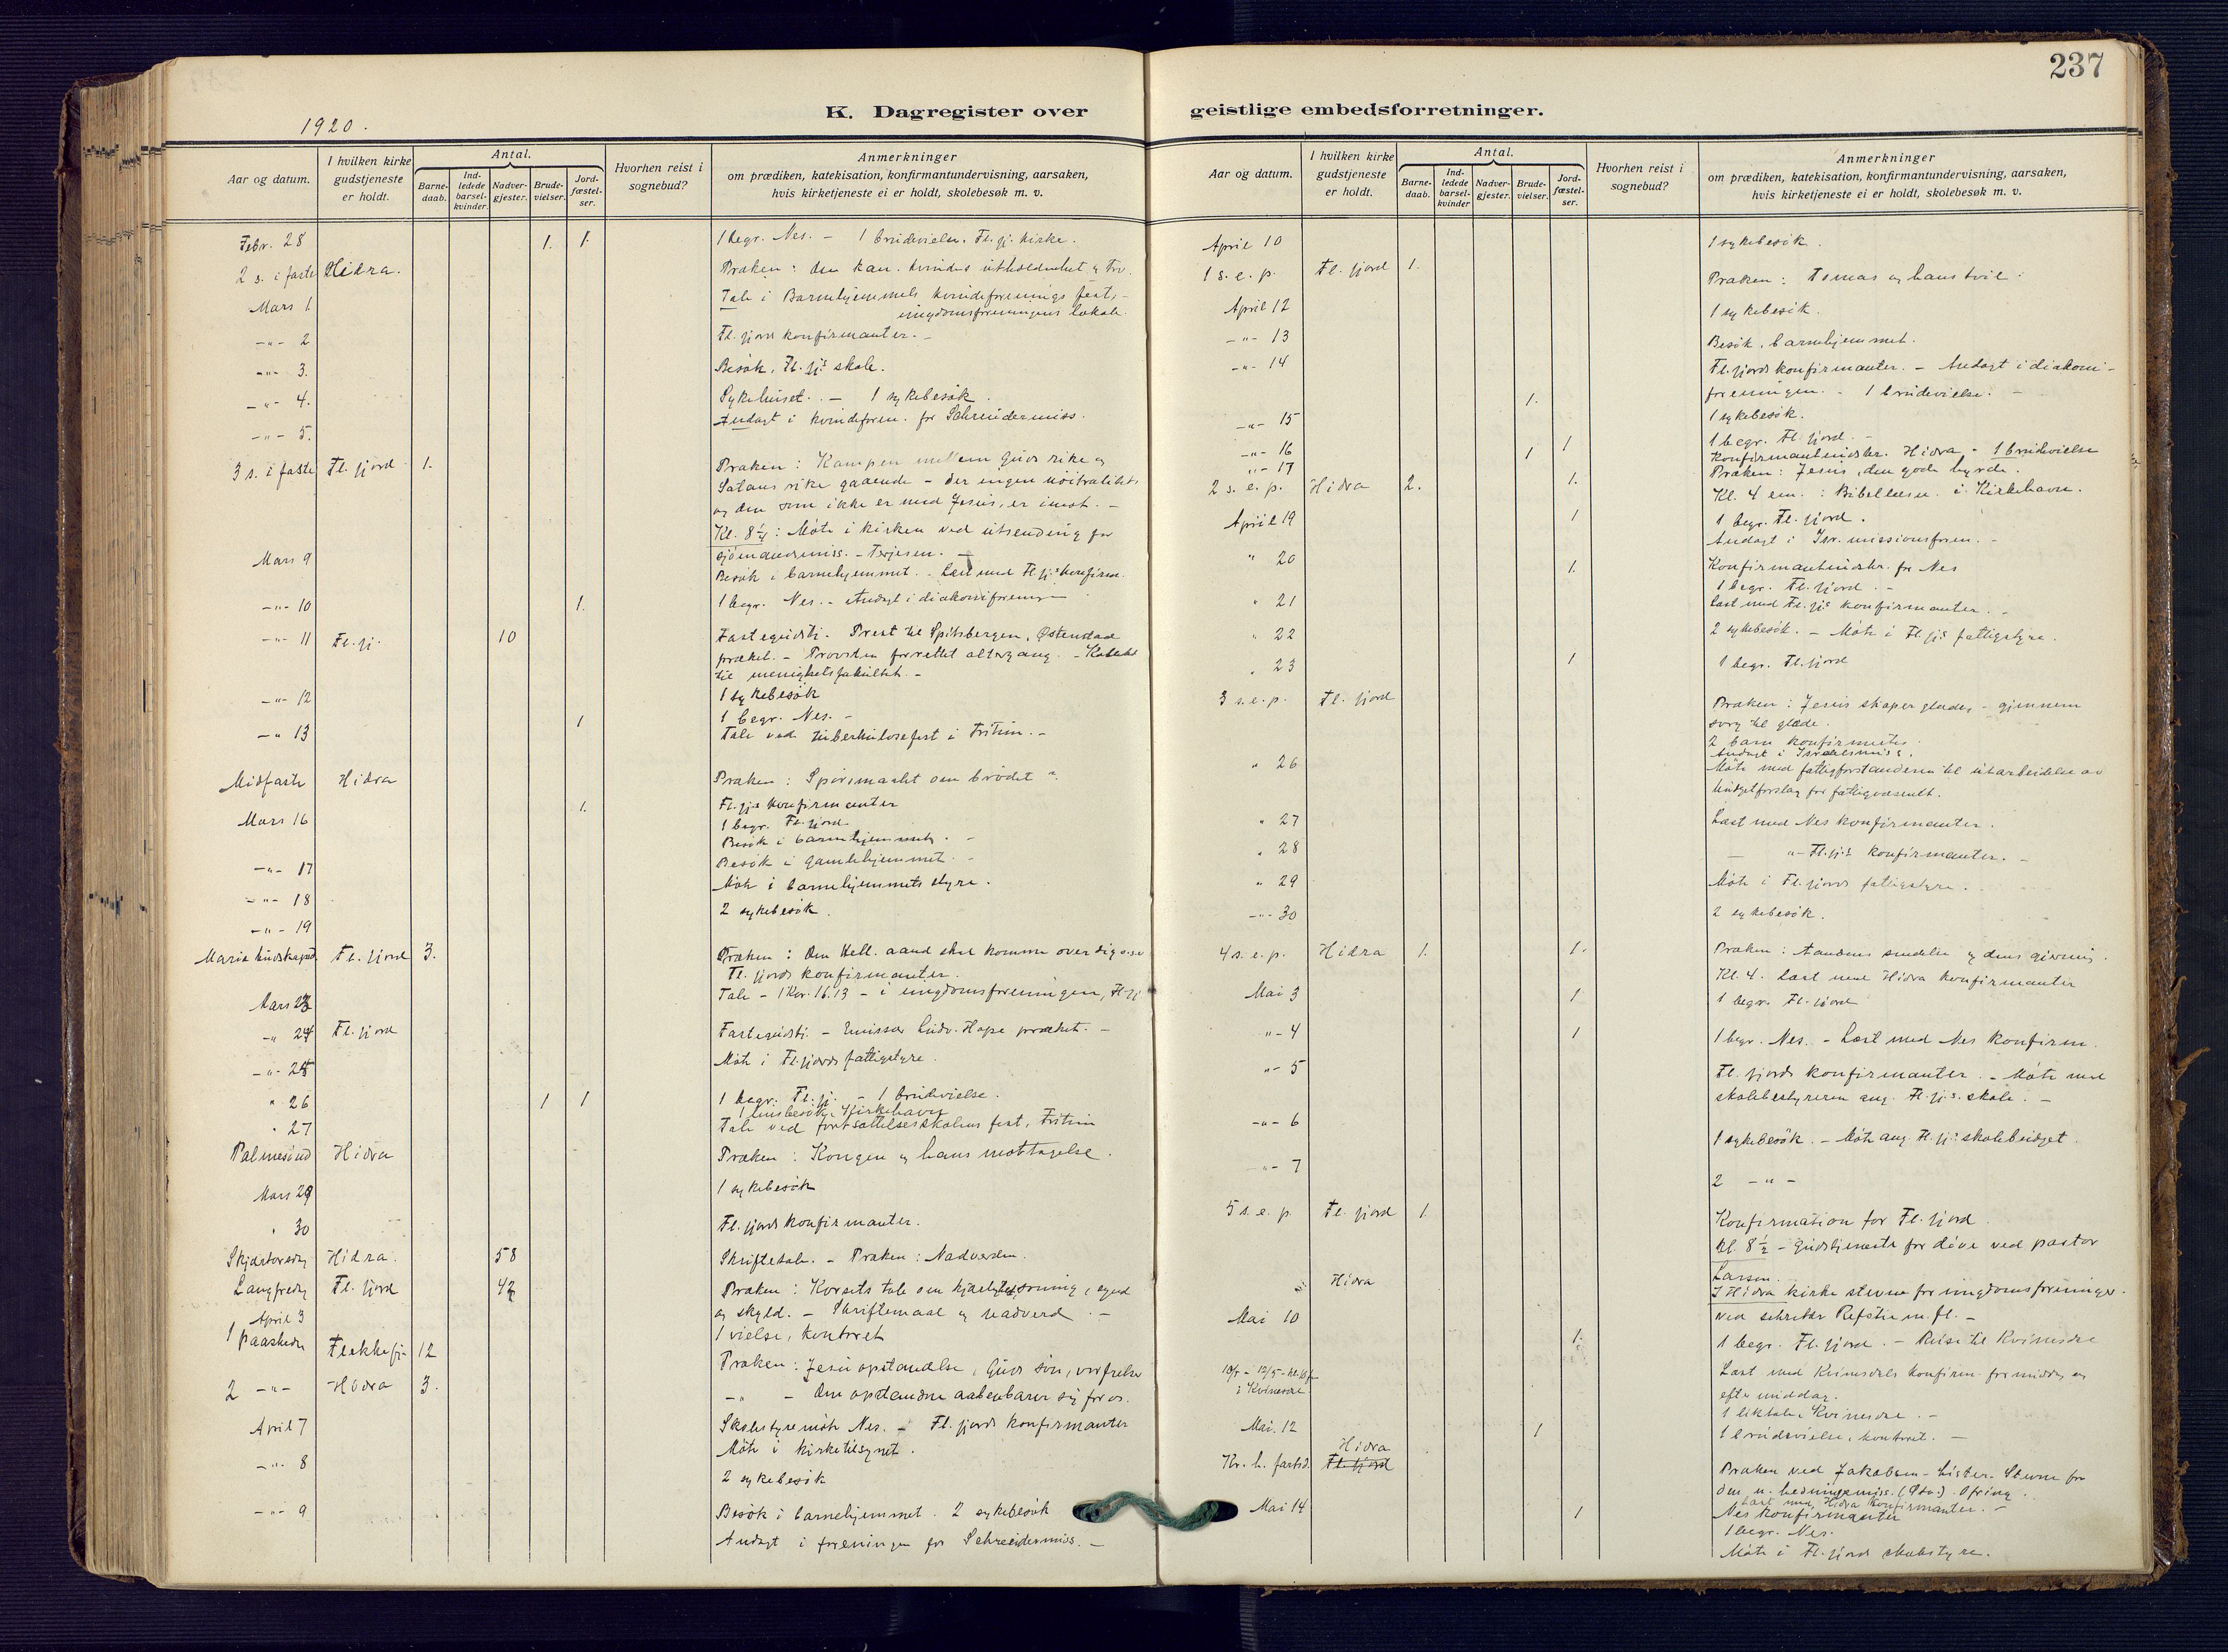 237
K. Dagregister over geistlige embedsforretninger.
1920.
Aar og datum.
I hvilken kirke gudstjeneste er holdt.
Antal.
Barne-daab.
Ind-ledede barsel-kvinder.
Nadver-gjester.
Brude-vielser.
Jord-fæstel-ser.
Hvorhen reist i sognebud?
Anmerkninger
om prædiken, katekisation, konfirmantundervisning, aarsaken,
hvis kirketjeneste ei er holdt, skolebesøk m. v.
Febr. 28 1. 1. 1 begr. Nes. – 1 brudevielse. Fl. fj. kirke.
2 s. i faste Hidra. Præken: Den kan. kvindes utholdenhet og tro.
Mars 1. Tale i Barnehjemmets kvindeforenings fest, –
ungdomsforeningens lokale.
-"- 2 Fl. fjord konfirmanter. –
-"- 3. Besøk, Fl. fj.s skole.
-"- 4. Sykehuset. – 1 sykebesøk
-"- 5. Andagt i kvindeforen. for Schreudermiss.
3 s. i faste Fl. fjord 1. Præken: Kampen mellem Guds rike og
Satans rike gaaende – der ingen nöitralitet
og den som ikke er med Jesus, er imot. –
Kl. 8¼: Möte i kirken ved utsending for
sjömandsmiss. – Terjesen. –
Mars 9 Besøk i barnehjemmet. – Læst med Fl. fj.s konfirm.
-"- 10 1. 1 begr. Nes. – Andagt i diakoniforening –
-"- 11 Fl. fj. 10 Fastegudstj. – Prest til Spitsbergen, Østenstad
præket. – Provsten forrettet altergang. – Kollekt
til menighetsfakultet. –
-"- 12 1 sykebesøk
-"- 13 1 1 begr. Nes. –
Tale ved tuberkulosefest i Fritun. –
Midfaste Hidra Præken: Spörsmaalet om brödet".
Mars 16 1. Fl. fj.s konfirmanter
1 begr. Fl. fjord.
Besøk i barnehjemmet. –
-"- 17 Besøk i gamlehjemmet. –
-"- 18 Möte i barnehjemmets styre.
-"- 19 2 sykebesøk.
Mariæ budskapsd. Fl. fjord 3. Præken: Den Hell. aand skal komme over dig o.s.v
Fl. fjords konfirmanter.
Mars 23 Tale – 1 Kor. 16.13 – i ungdomsforeningen, Fl. fj
-"- 24 Fl. fjord Fastegudstj. – Emissær Ludv. Hope præket. –
-"- 25 Möte i Fl. fjords fattigstyre.
" 26 1 1 1 begr. Fl. fj. – 1 brudevielse.
1 husbesøk, Kirkehavn
" 27 Tale ved fortsættelsesskolens fest, Fritun
Palmesönd Hidra Præken: Kongen og hans mottagelse.
Mars 29 1 sykebesøk
" 30 Fl. fjords konfirmanter.
Skjærtorsdag Hidra. 58 Skriftetale. – Præken: Nadverden.
Langfredag Fl. fjord 42 Præken: Korsets tale om kjærlighet, soning, synd
og skyld. – Skriftemaal og nadverd. –
April 3 1 vielse, kontoret
1 paaskeda Flekkefj. 12 Præken: Jesu opstandelse, Guds sön, vor frelser
2 -"- Hidra 3. -"- – Den opstandne aabenbarer sig for os.
April 7 Skolestyremöte Nes. – Fl. fjords konfirmanter
Möte i kirketilsynet.
-"- 8 2 sykebesøk
-"- 9 Besøk i barnehjemmet. 2 sykebesøk
Andagt i foreningen for Schreudermiss. –
Aar og datum.
I hvilken kirke gudstjeneste er holdt.
Antal.
Barne-daab.
Ind-ledede barsel-kvinder
Nadver-gjester.
Brude-vielser.
Jord-fæstel-ser.
Hvorhen reist i sognebud?
Anmerkninger
om prædiken, katekisation, konfirmantundervisning, aarsaken,
hvis kirketjeneste ei er holdt, skolebesøk m. v.
April 10 1 sykebesøk.
1 s. e. p. Fl. fjord 1. Præken: Tomas og hans tvil.
April 12 1 sykebesøk.
-"- 13 Besøk, barnehjemmet.
-"- 14 Fl. fjords konfirmanter. – Andagt i diakoni-
1. foreningen. – 1 brudevielse. –
-"- 15 1 sykebesøk.
-"- 16 1 1 begr. Fl. fjord. –
-"- 17 1 Konfirmantundster. Hidra – 1 brudevielse
2 s. e. p. Hidra 2. 1. Præken: Jesus, den gode hyrde.
Kl. 4 em.: Bibellæsn. i Kirkehavn.
April 19 1 1 begr. Fl. fjord.
Andagt i Isr. missionsforen. –
" 20 1. Konfirmantundster. for Nes
1 begr. Fl. fjord. –
" 21 Læst med Fl. fj.s konfirmanter. –
" 22 2 sykebesøk. – Möte i Fl. fj.s fattigstyre.
" 23 1 1 begr. Fl. fjord
3 s. e. p. Fl. fjord Præken: Jesus skaper glæde, – gjennem
sorg til glæde.
2 barn konfirmertes.
Andagt i Israelsmiss.
" 26 Möte med fattigforstanderen til utarbeidelse av
budgetforslag for fattigvæsenet.
" 27 Læst med Nes konfirmanter.
" 28 – "– Fl. fj.s konfirmanter. –
" 29 Möte i Fl. fjords fattigstyre.
-"- 30 2 sykebesøk.
4 s. e. p. Hidra 1. 1. Præken: Aandens sendelse og dens gjerning.
Kl. 4. Læst med Hidra konfirmanter
Mai 3 1 1 begr. Fl. fjord
"- 4 1 1 begr. Nes. – Læst med Nes konfirm.
"- 5 Fl. fjords konfirmanter. – Möte med
skolebestyreren ang. Fl. fj.s. skole. –
-"- 6 1 sykebesøk. – Möte ang. Fl. fj.s skolebudget.
-"- 7 2 -"-
5 s. e. p. Fl. fjord 1. Konfirmation for Fl. fjord
Kl. 8½ – Gudstjeneste for döve ved pastor
Larsen.
Hidra I Hidra kirke stevne for ungdomsforeninger
Mai 10 ved sekretær Refstie m. fl. –
1. 1 begr. Fl. fjord. – Reise til Kvinesdal
10/5 – 12/5 i Kvinesdal Læst med Kvinesdals konfirm. formiddag og
eftermiddag.
1 liktale, Kvinesdal. –
Mai. 12 1 1 brudevielse, kontoret. –
Kr. h. fartsd. Hidra Fl. fjord Præken ved Jakobsen – Lister. Stevne for
den n. hedningemiss. Ofring.
Læst med Hidra konfirmanter. –
Mai 14 1 Nes konfirmanter
1 begr. Nes.
Möte i Fl. fjords skolestyre.